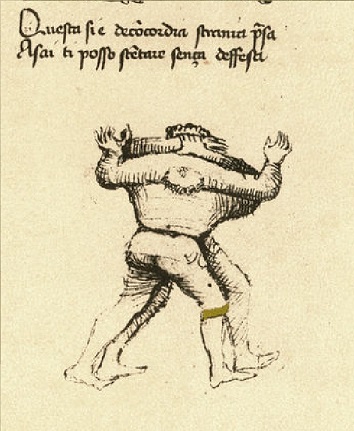 Questa si e decōcordia strania p̄sa
Asai ti posso stētare senza deffesa